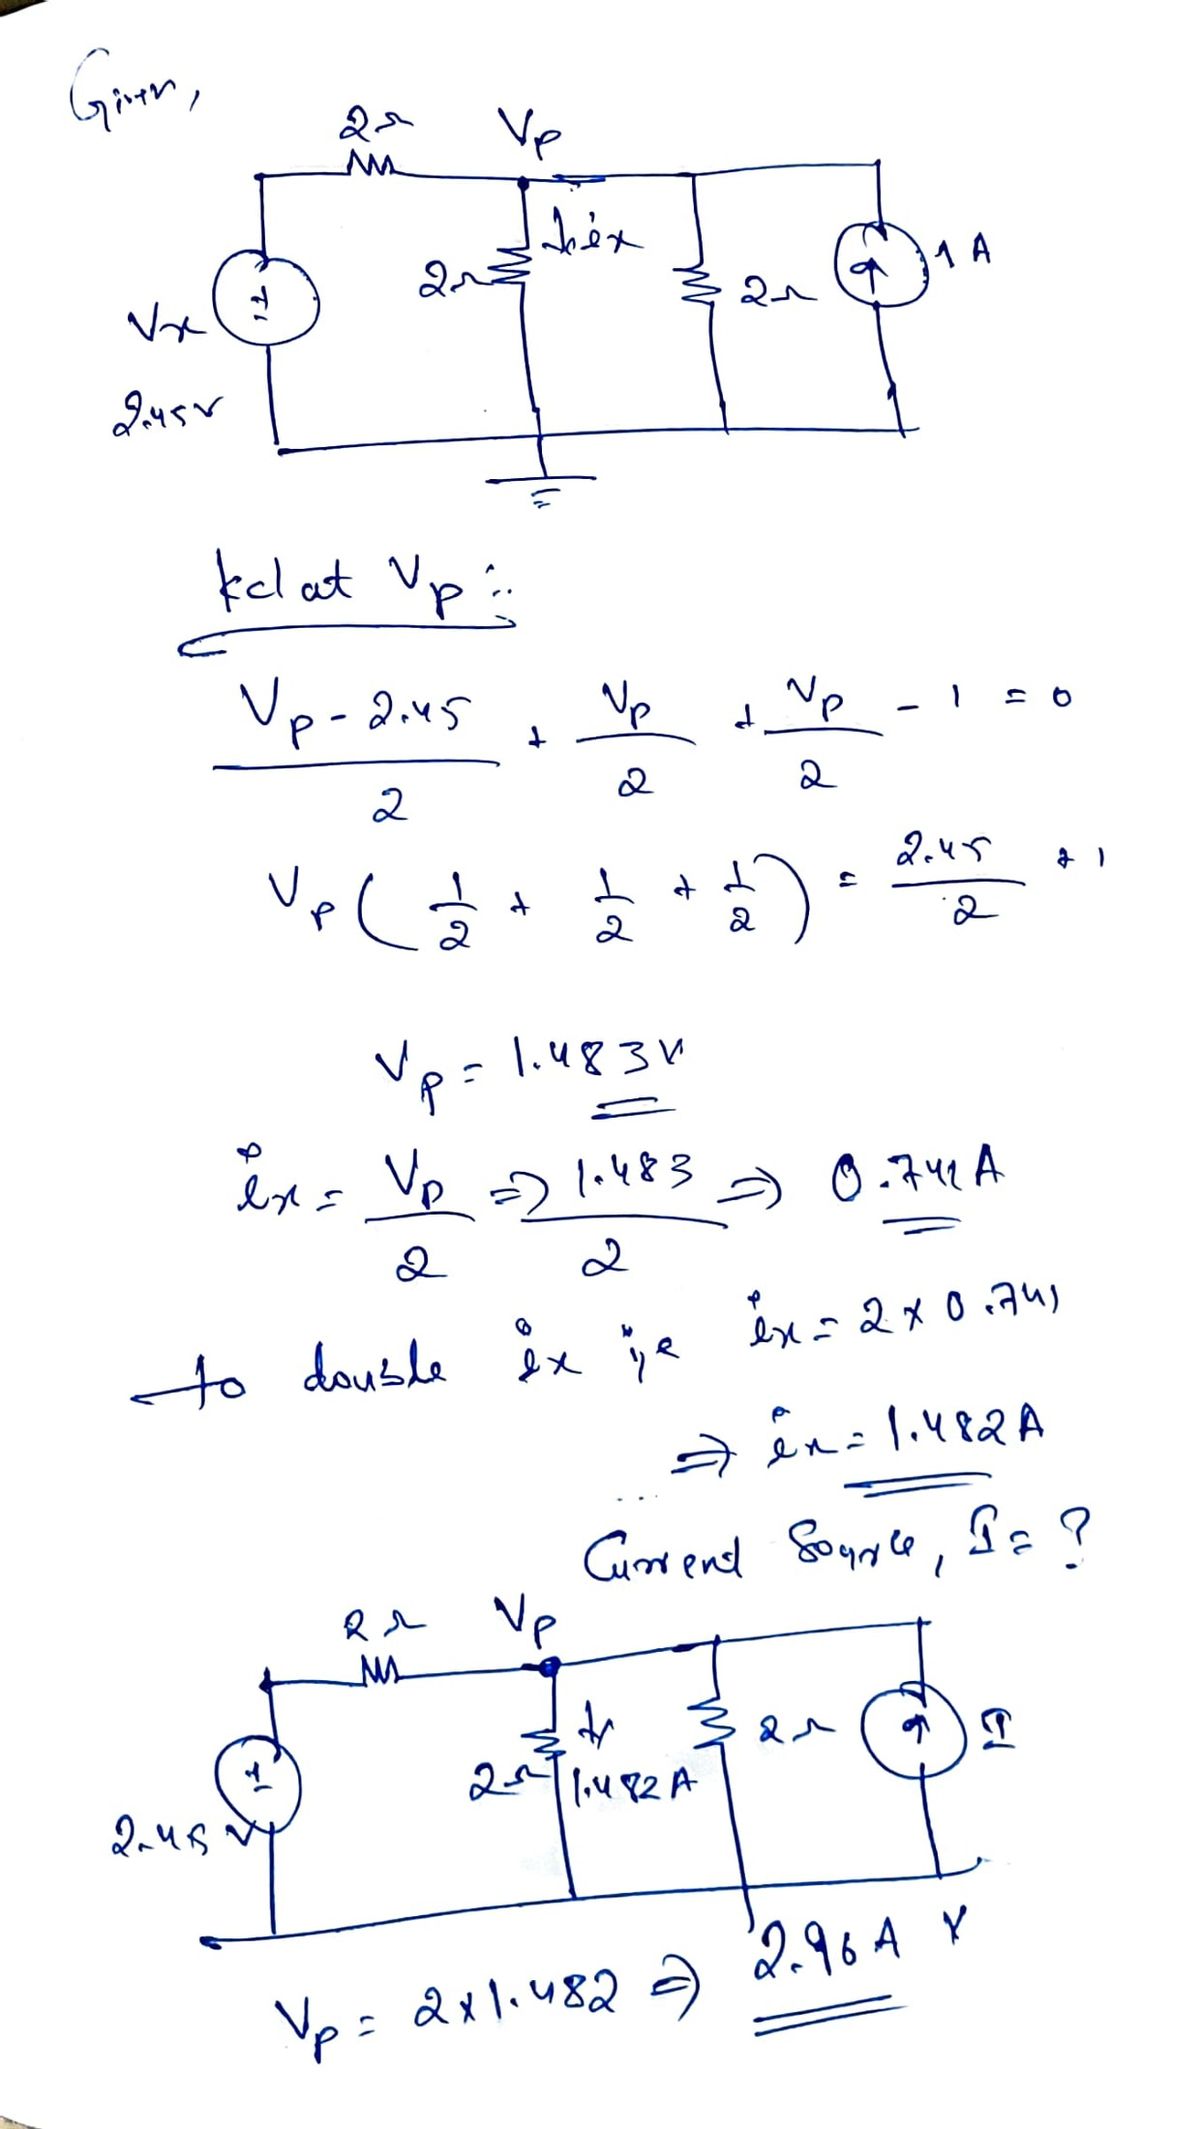 Given,
2Ω Vp
ix
2Ω 2Ω 1 A
Vx
2.45V
kcl at Vp :-
Vp - 2.45 / 2 + Vp / 2 + Vp / 2 - 1 = 0
Vp ( 1/2 + 1/2 + 1/2 ) = 2.45 / 2 + 1
Vp = 1.483V
ix = Vp / 2 ⇒ 1.483 / 2 ⇒ 0.741 A
to double ix i,e ix = 2 x 0.741
⇒ ix = 1.482 A
Current Source, I = ?
2Ω Vp
2Ω 1.482 A 2Ω I
2.45 V
Vp = 2 x 1.482 ⇒ 2.96 A V